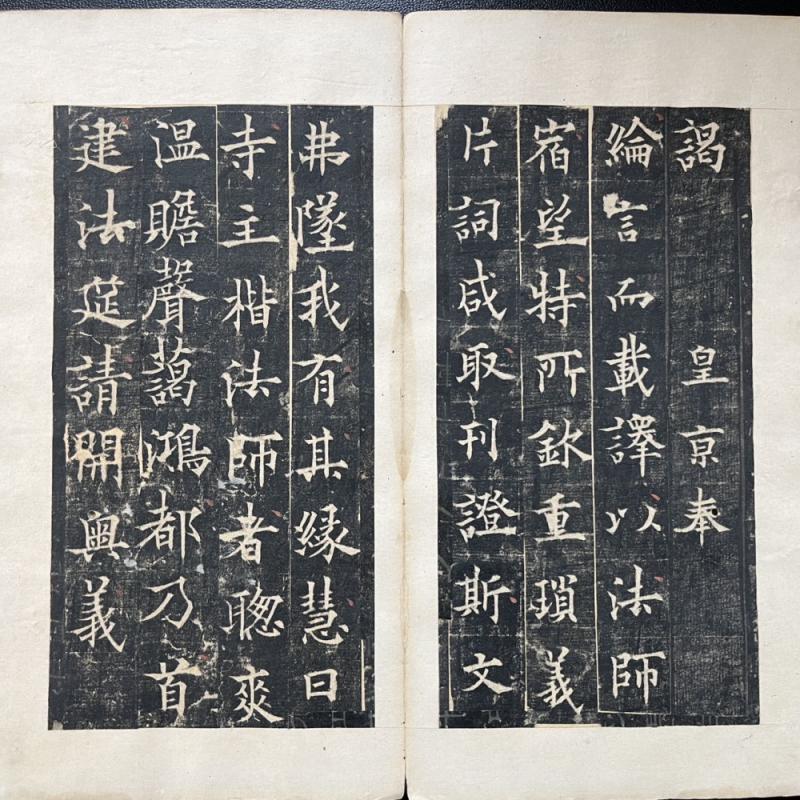 謁皇京奉
綸言而載譯以法師
宿望特所欽重瑣義
片詞咸取刊證斯文
弗墜我有其緣慧日
寺主楷法師者聰爽
溫贍聲藹鴻都乃首
建法筵請開奧義